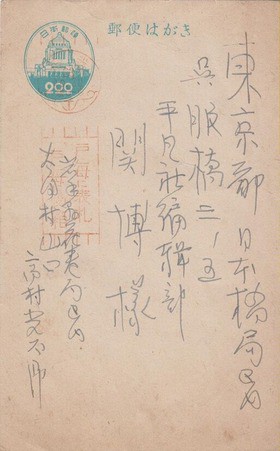 郵便はがき
日本郵便
2.00
東京都日本橋局区内
呉服橋二ノ五
平凡社編輯部
関博様
岩手县花巻局区内
太田村山口
高村光太郎